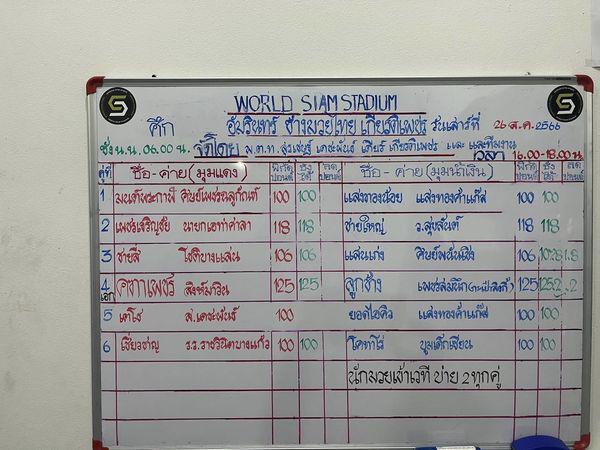 WORLD SIAM STADIUM
ศึก อัมรินทร์ ช้างมวยไทย เกียรติเพชร วันเสาร์ที่ 26 ส.ค. 2566
ชั่ง น.น. 06.00 น. จัดโดย พ.ต.ท. สุรเชษฐ์ เดชะพันธ์ เสี่ยร์ เกียรติเพชร และ และทีมงาน
เวลา 16.00-18.00 น.
คู่ที่ ชื่อ - ค่าย (มุมแดง) พิกัด ปอนด์ ชั่งได้ ลด ปอนด์ ชื่อ - ค่าย (มุมน้ำเงิน) พิกัด ปอนด์ ชั่งได้ ลด ปอนด์
1 100 100 แสงทองน้อย แสงทองค้าแก๊ส 100 100
2 เพชรเจริญชัย นายกเอท่าศาลา 118 118 ชายใหญ่ ว.สุขสันต์ 118 118
3 ชายสี่ โชติบางแสน 106 106 แสนเก่ง ศิษย์พนันเชิง 106 1.8
4 เอก คฑาเพชร สิงห์มาวิน 125 125 ลูกช้าง 125 125.2 .2
5 เตโช ส.เดชะพันธ์ 100 ยอดไอคิว แสงทองค้าแก๊ส 100 100
6 เชี่ยวชาญ ร.ร.ราชวินิตบางแก้ว 100 100 โคทาโร่ บูมเด็กเซียน 100 100
นักมวยเข้าเวที บ่าย 2 ทุกคู่